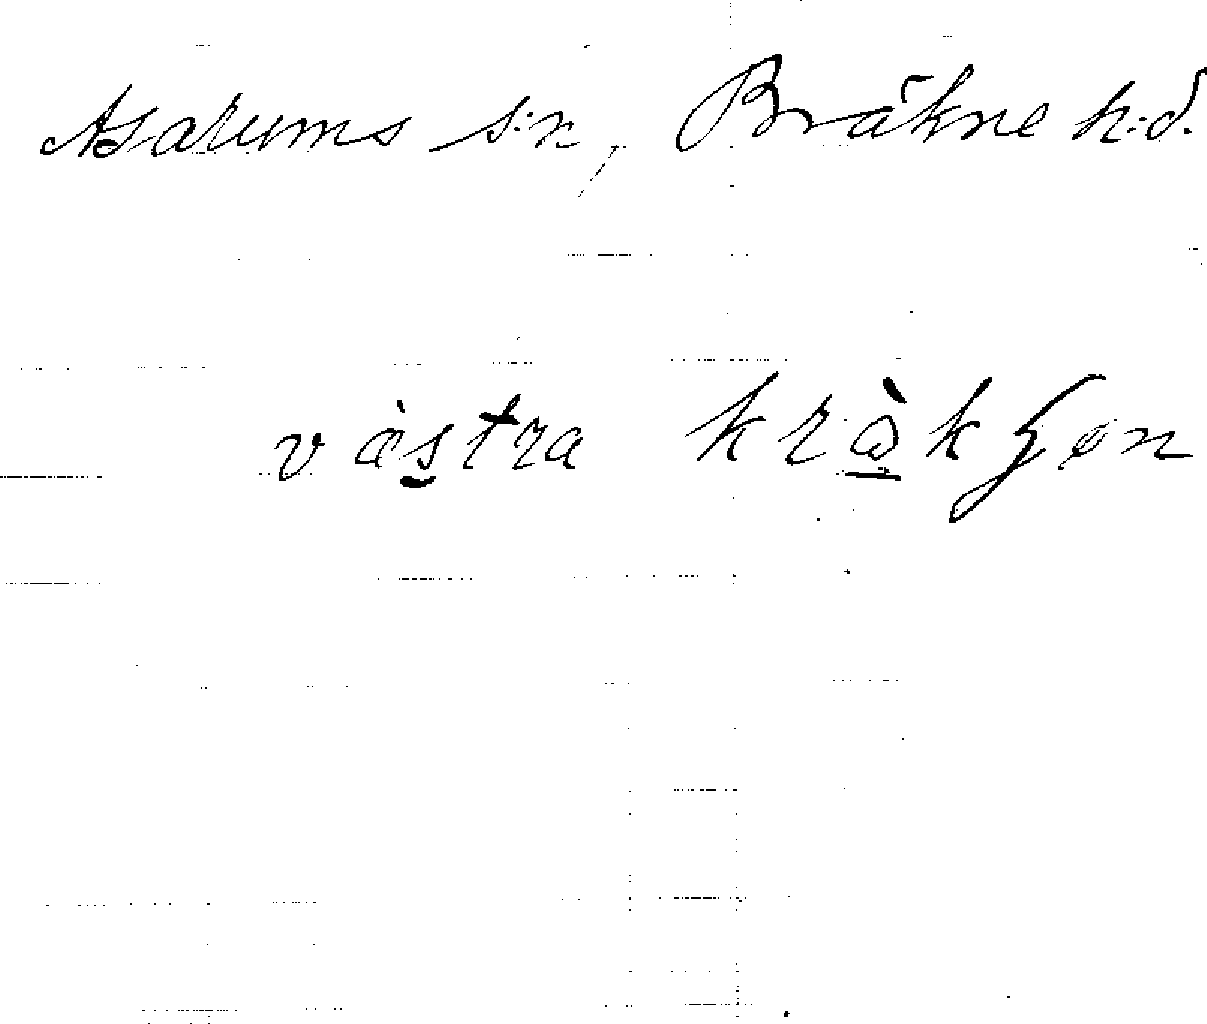 Asarums s:n, Bräkne h:d.
västra kråkȝən